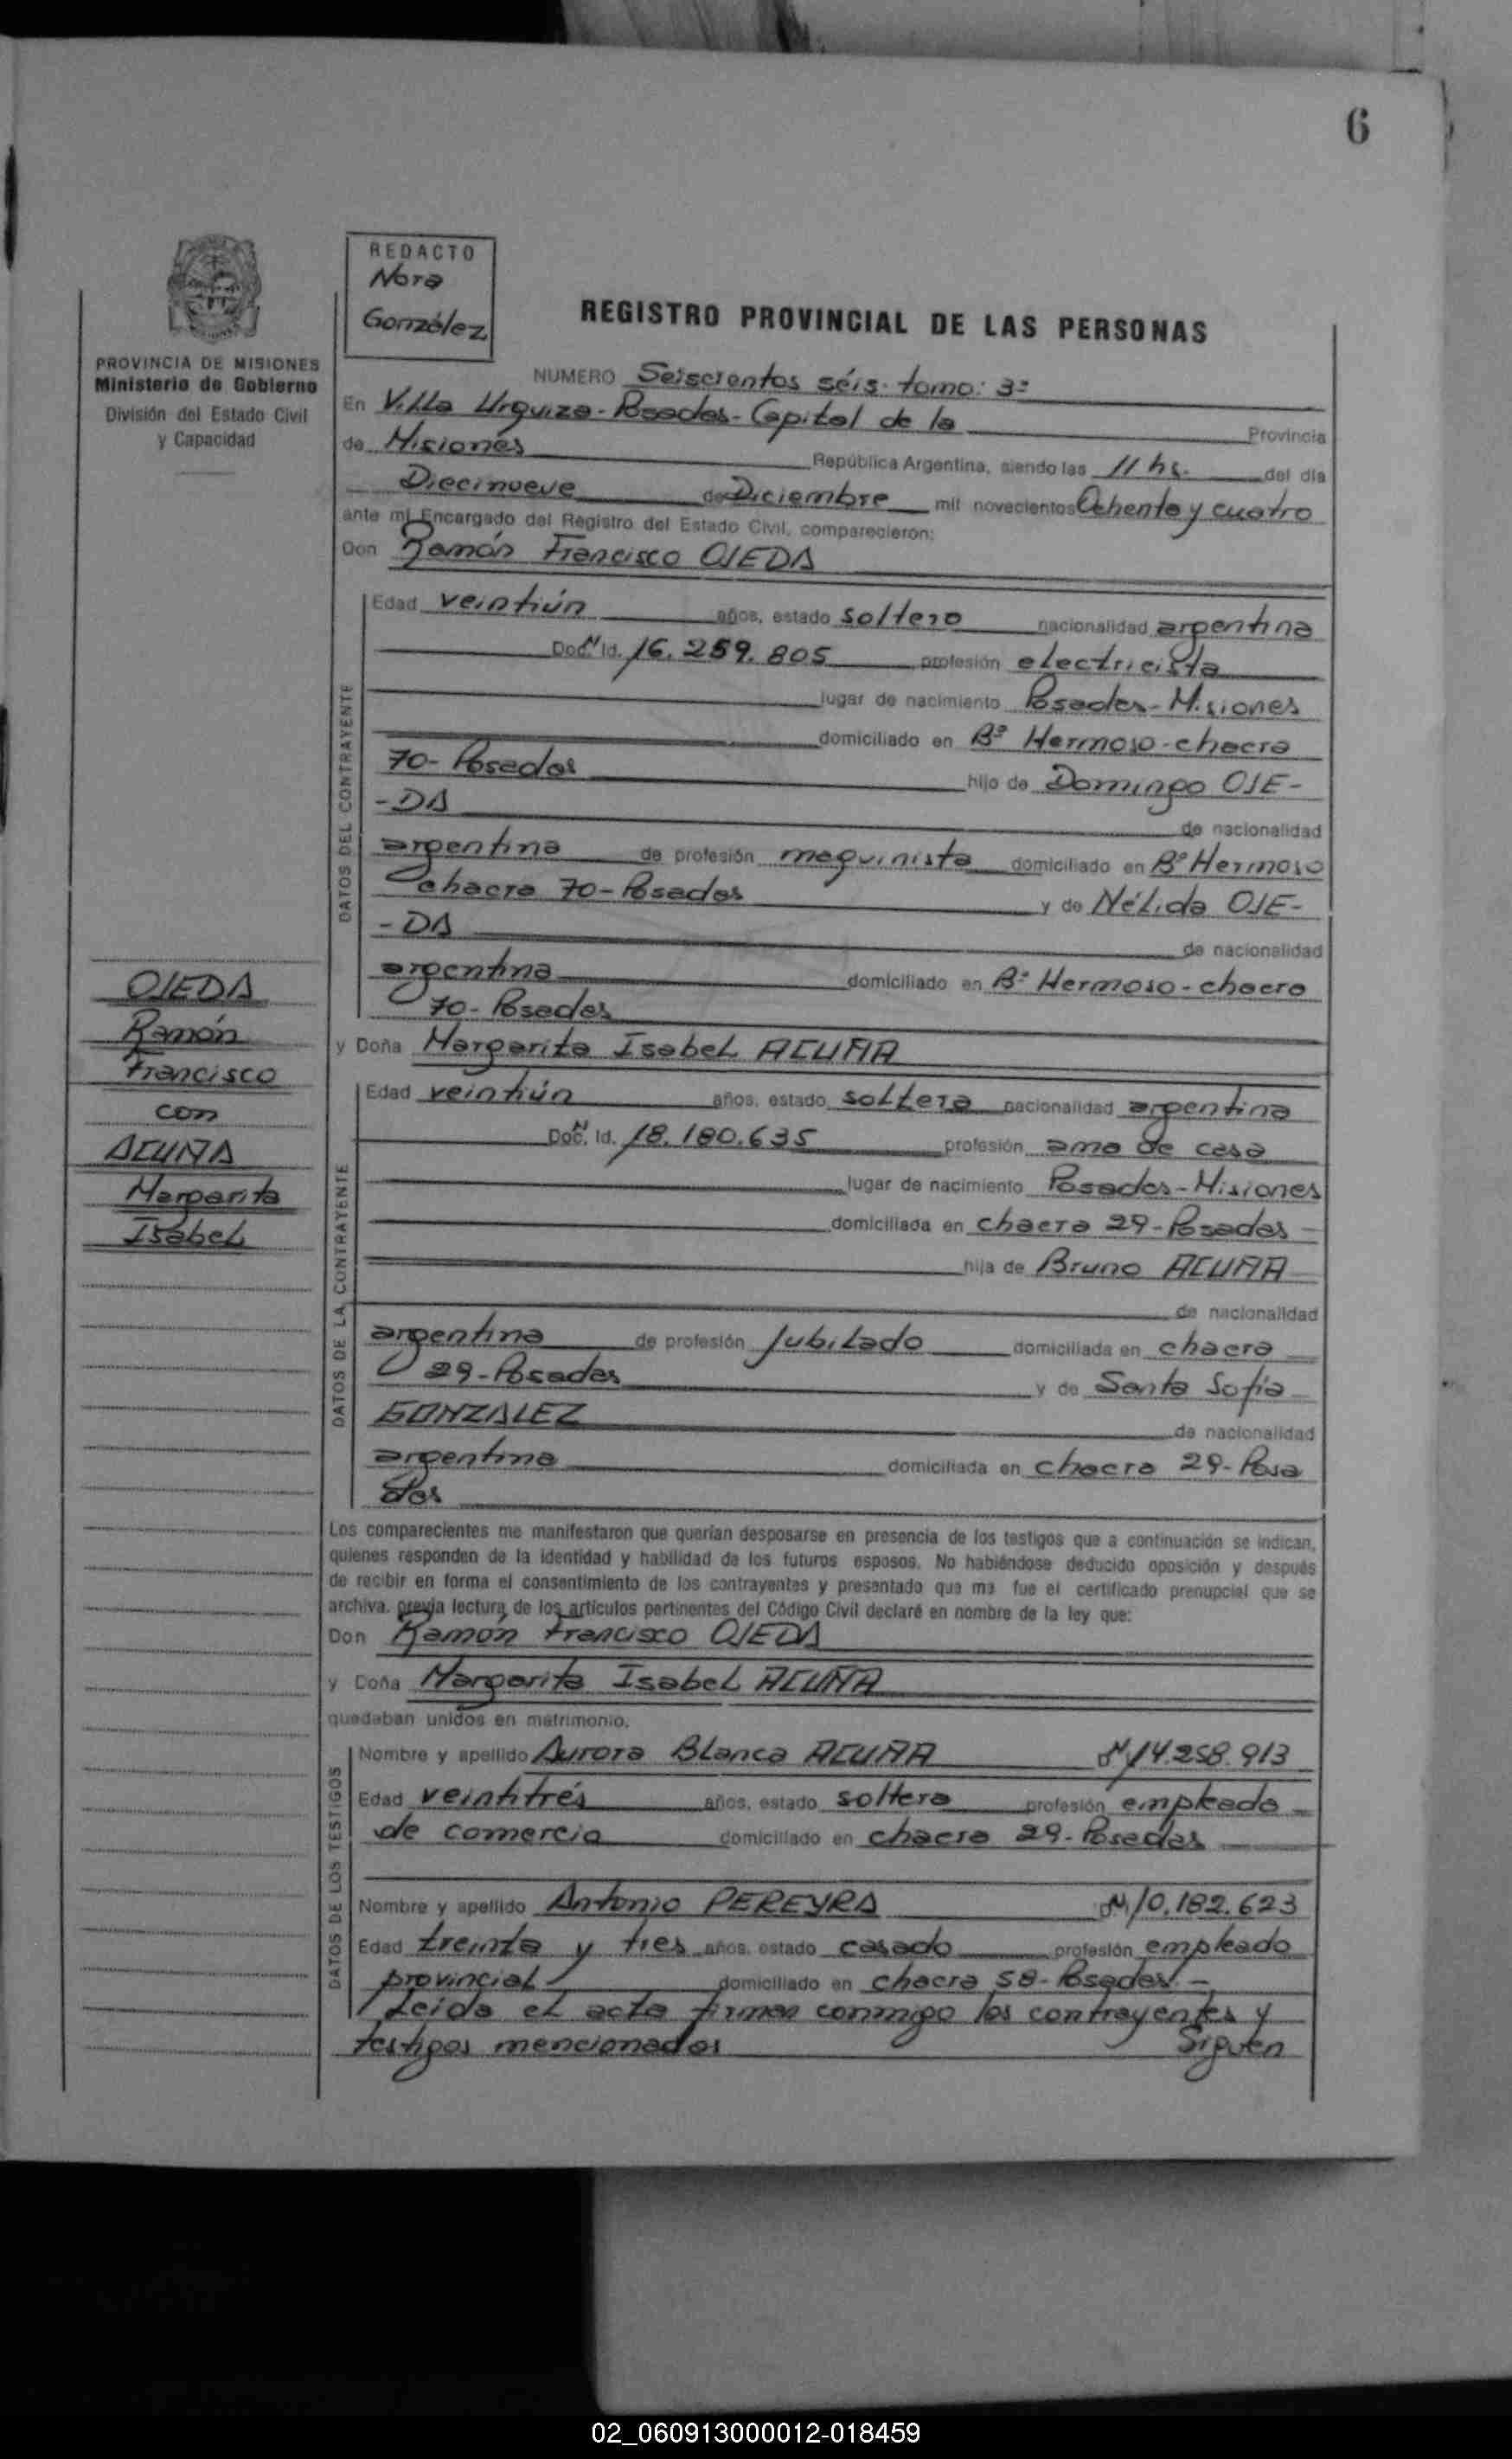 6
REDACTO
Nora
González
REGISTRO PROVINCIAL DE LAS PERSONAS
PROVINCIA DE MISIONES
Ministerio de Gobierno
División del Estado Civil
y Capacidad
NUMERO Seiscientos séis. tomo: 3º
En Villa Urquiza - Posadas - Capital de la Provincia
de Misiones República Argentina, siendo las 11 hs. del día
Diecinueve de Diciembre mil novecientos Ochenta y cuatro
ante mí Encargado del Registro del Estado Civil, comparecieron:
Don Ramón Francisco OJEDA
DATOS DEL CONTRAYENTE
Edad veintiún años, estado soltero nacionalidad argentina
Doc. Id. Nº 16.259.805 profesión electricista
lugar de nacimiento Posadas - Misiones
domiciliado en Bº Hermoso - chacra
70 - Posadas hijo de Domingo OJE-
- DA de nacionalidad
argentina de profesión maquinista domiciliado en Bº Hermoso
chacra 70 - Posadas y de Nélida OJE-
- DA de nacionalidad
argentina domiciliado en Bº Hermoso - chacra
70 - Posadas
y Doña Margarita Isabel ACUÑA
OJEDA
Ramón
Francisco
con
ACUÑA
Margarita
Isabel
DATOS DE LA CONTRAYENTE
Edad veintiún años, estado soltera nacionalidad argentina
Doc. Id. Nº 18.180.635 profesión ama de casa
lugar de nacimiento Posadas - Misiones
domiciliada en chacra 29 - Posadas -
hija de Bruno ACUÑA
de nacionalidad
argentina de profesión Jubilado domiciliada en chacra
29 - Posadas y de Santa Sofía
GONZALEZ de nacionalidad
argentina domiciliada en chacra 29 - Posa
das
Los comparecientes me manifestaron que querían desposarse en presencia de los testigos que a continuación se indican,
quienes responden de la identidad y habilidad de los futuros esposos. No habiéndose deducido oposición y después
de recibir en forma el consentimiento de los contrayentes y presentado que me fue el certificado prenupcial que se
archiva, previa lectura de los artículos pertinentes del Código Civil declaré en nombre de la ley que:
Don Ramón Francisco OJEDA
y Doña Margarita Isabel ACUÑA
quedaban unidos en matrimonio.
DATOS DE LOS TESTIGOS
Nombre y apellido Aurora Blanca ACUÑA 14.258.913
Edad veintitrés años, estado soltera profesión empleada
de comercio domiciliado en chacra 29 - Posadas
Nombre y apellido Antonio PEREYRA 10.182.623
Edad treinta y tres años, estado casado profesión empleado
provincial domiciliado en chacra 58 - Posadas. -
Leída el acta firman conmigo los contrayentes y
testigos mencionados Siguen
02_060913000012-018459